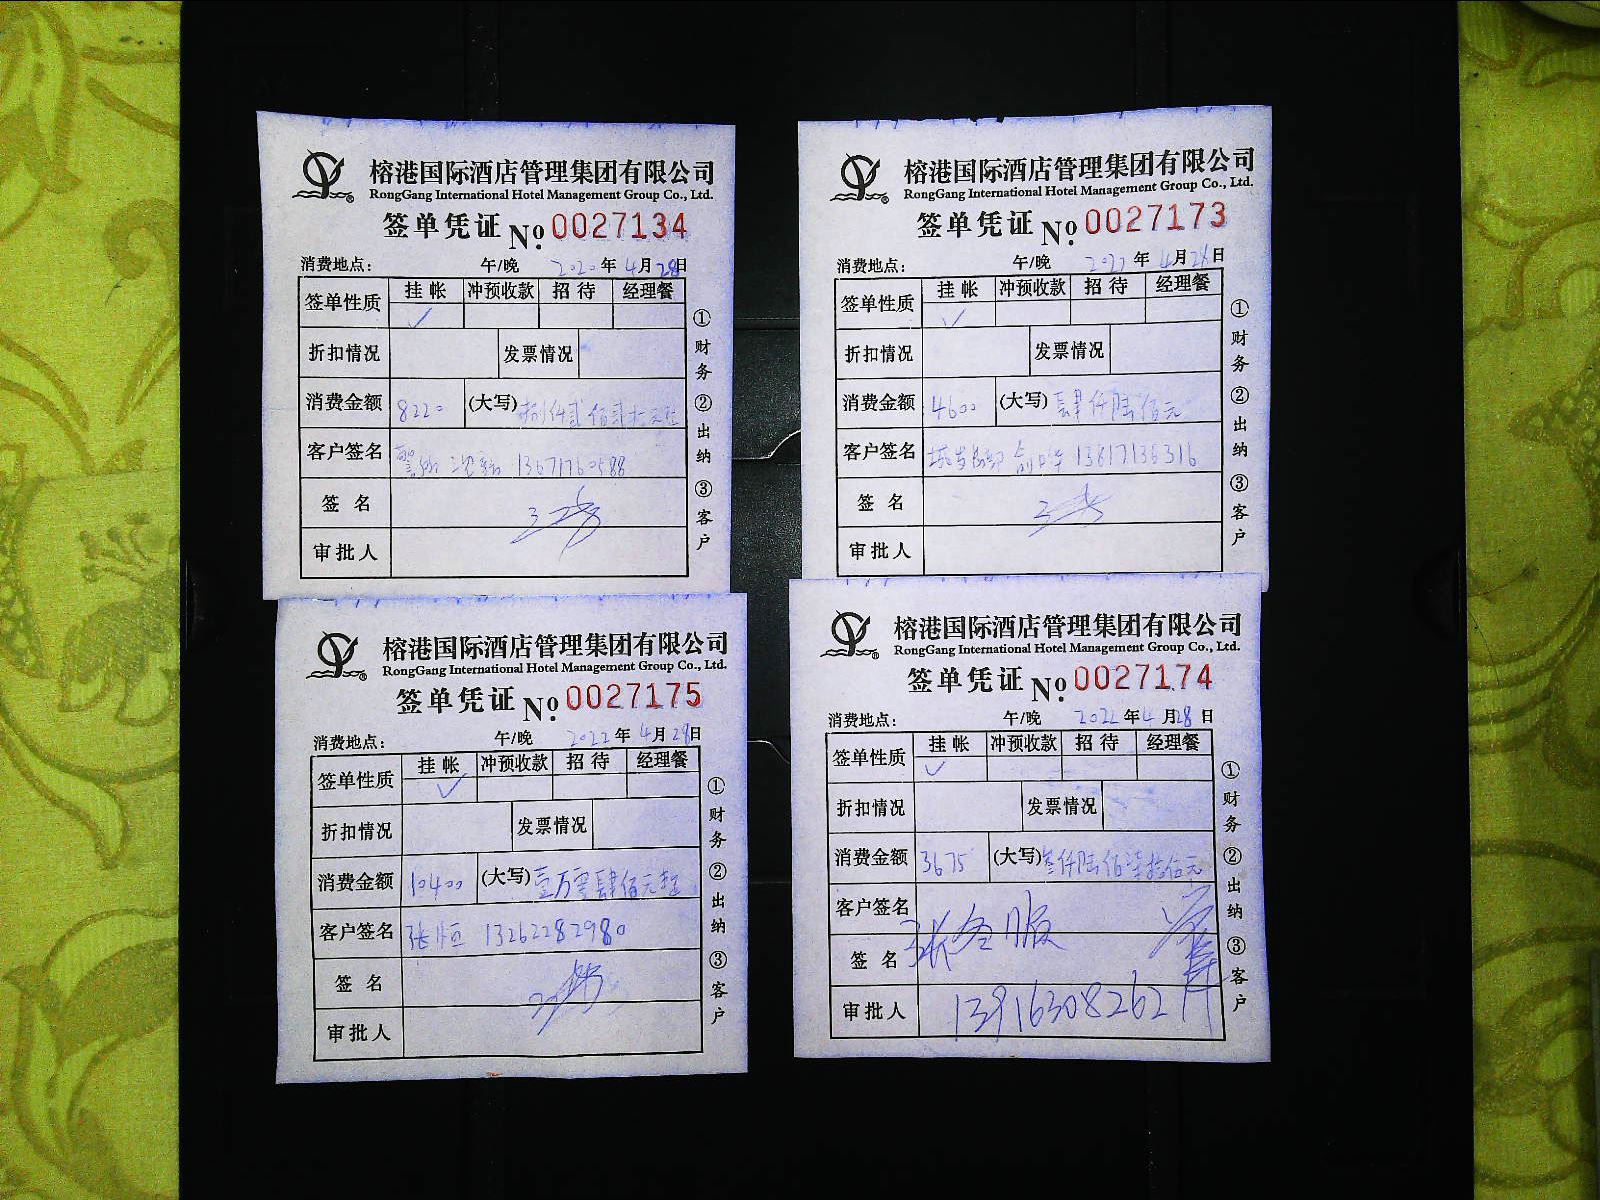 榕港国际酒店管理集团有限公司
RongGang International Hotel Management Group Co., Ltd.
签单凭证 No. 0027134
消费地点: 午/晚 2020年4月28日
签单性质 挂帐 冲预收款 招待 经理餐
✓
折扣情况 发票情况
消费金额 8220 (大写) 捌仟贰佰贰拾元整
客户签名 13671760588
签名
审批人
①财务 ②出纳 ③客户
榕港国际酒店管理集团有限公司
RongGang International Hotel Management Group Co., Ltd.
签单凭证 No. 0027173
消费地点: 午/晚 2022年4月28日
签单性质 挂帐 冲预收款 招待 经理餐
✓
折扣情况 发票情况
消费金额 4600 (大写) 肆仟陆佰元
客户签名 13817136316
签名
审批人
①财务 ②出纳 ③客户
榕港国际酒店管理集团有限公司
RongGang International Hotel Management Group Co., Ltd.
签单凭证 No. 0027175
消费地点: 午/晚 2022年4月28日
签单性质 挂帐 冲预收款 招待 经理餐
✓
折扣情况 发票情况
消费金额 10400 (大写) 壹万零肆佰元整
客户签名 张恒 13262282980
签名
审批人
①财务 ②出纳 ③客户
榕港国际酒店管理集团有限公司
RongGang International Hotel Management Group Co., Ltd.
签单凭证 No. 0027174
消费地点: 午/晚 2022年4月28日
签单性质 挂帐 冲预收款 招待 经理餐
✓
折扣情况 发票情况
消费金额 3675 (大写) 叁仟陆佰柒拾伍元
客户签名
签名
审批人 13916308262
①财务 ②出纳 ③客户